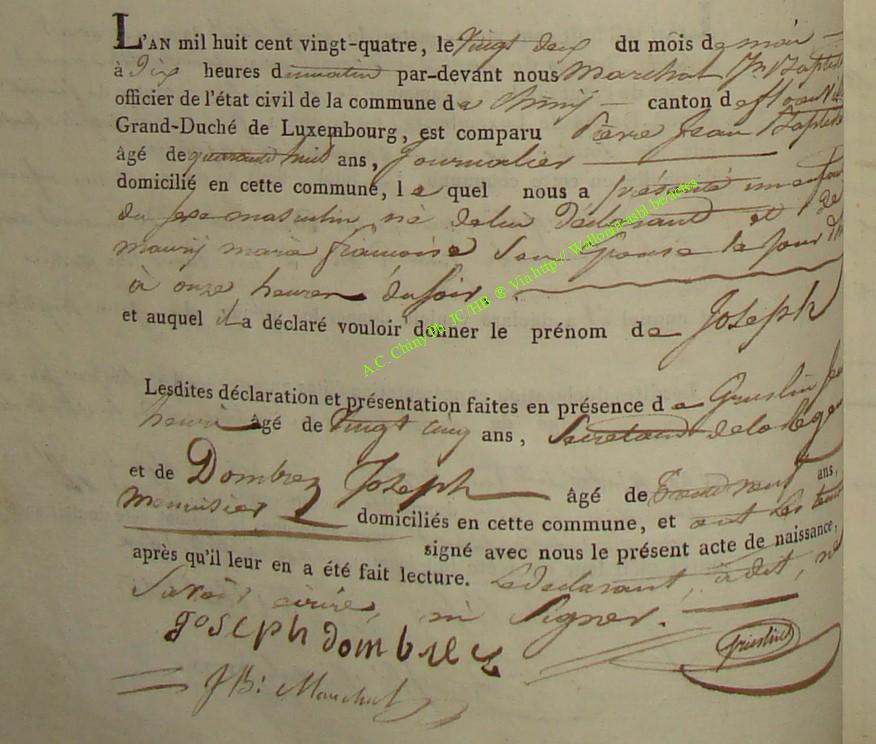 L'AN mil huit cent vingt-quatre, le Vingt deux du mois de mai
à Dix heures du matin par-devant nous Marchal Jn Baptiste
officier de l'état civil de la commune de Chiny canton de florenville
Grand-Duché de Luxembourg, est comparu Pierre Jean Baptiste
âgé de quarante huit ans, Journalier
domicilié en cette commune, le quel nous a présenté un enfant
du sexe masculin né de lui Déclarant et de
marie francoise Son Epouse le jour
à onze heures du soir
et auquel il a déclaré vouloir donner le prénom de Joseph
Lesdites déclaration et présentation faites en présence de
henri âgé de Vingt cinq ans, Secretaire de la
et de Dombrez Joseph âgé de trente neuf ans,
Menuisier domiciliés en cette commune, et ont Les
signé avec nous le présent acte de naissance,
après qu'il leur en a été fait lecture. Le declarant, a dit, ne
Savoir écrire, ni Signer.
Joseph dombrez
JB: Marchal
A.C. Chiny Ph. JC /HB ® Via http:// Wallonia-asbl.be/actes